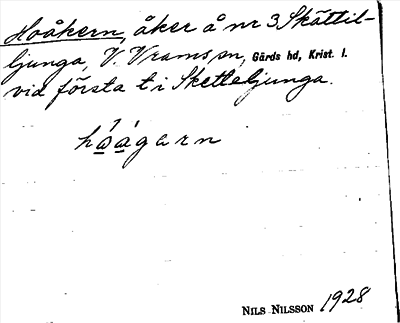 Hoåkern, åker å nr 3 Skättil-
ljunga, V. Vrams sn, Gärds hd, Krist. l.
vid första t i Sketteljunga.
håágarn
NILS NILSSON 1928